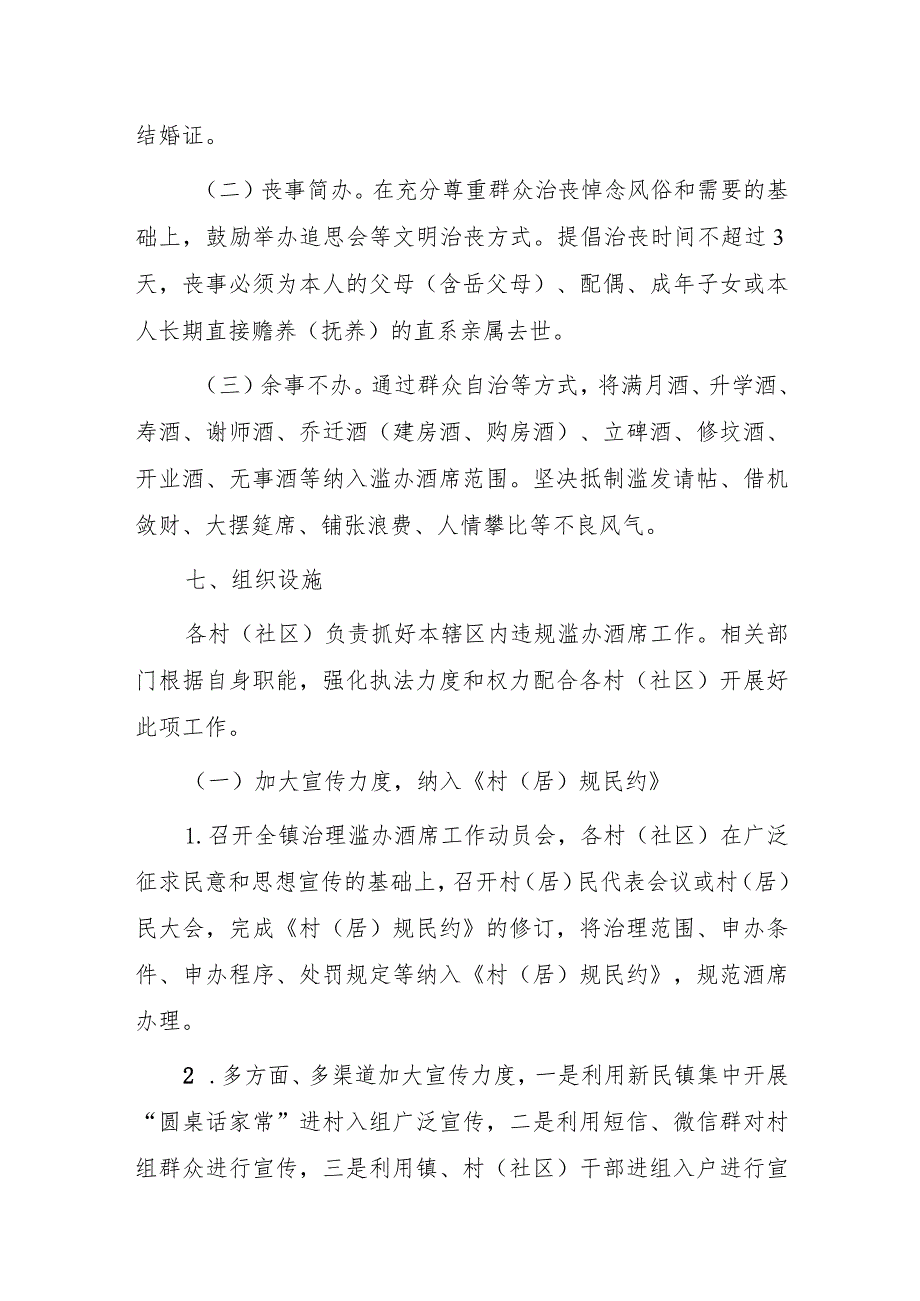 结婚证。
（二）丧事简办。在充分尊重群众治丧悼念风俗和需要的基
础上，鼓励举办追思会等文明治丧方式。提倡治丧时间不超过3
天，丧事必须为本人的父母（含岳父母）、配偶、成年子女或本
人长期直接赡养（抚养）的直系亲属去世。
（三）余事不办。通过群众自治等方式，将满月酒、升学酒、
寿酒、谢师酒、乔迁酒（建房酒、购房酒）、立碑酒、修坟酒、
开业酒、无事酒等纳入滥办酒席范围。坚决抵制滥发请帖、借机
敛财、大摆筵席、铺张浪费、人情攀比等不良风气。
七、组织设施
各村（社区）负责抓好本辖区内违规滥办酒席工作。相关部
门根据自身职能，强化执法力度和权力配合各村（社区）开展好
此项工作。
（一）加大宣传力度，纳入《村（居）规民约》
1.召开全镇治理滥办酒席工作动员会，各村（社区）在广泛
征求民意和思想宣传的基础上，召开村（居）民代表会议或村（居）
民大会，完成《村（居）规民约》的修订，将治理范围、申办条
件、申办程序、处罚规定等纳入《村（居）规民约》，规范酒席
办理。
2 .多方面、多渠道加大宣传力度，一是利用新民镇集中开展
“圆桌话家常”进村入组广泛宣传，二是利用短信、微信群对村
组群众进行宣传，三是利用镇、村（社区）干部进组入户进行宣